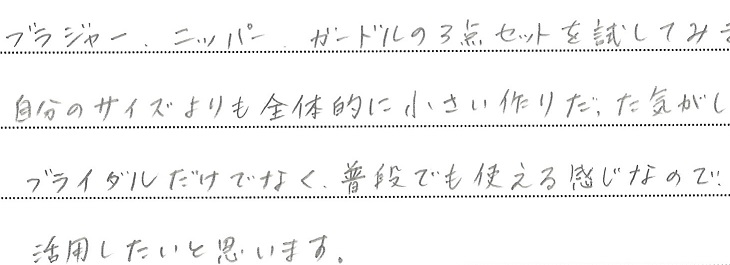 ブラジャー、ニッパー、ガードルの3点セットを試してみ
自分のサイズよりも全体的に小さい作りだった気がし
ブライダルだけでなく、普段でも使える感じなので
活用したいと思います。